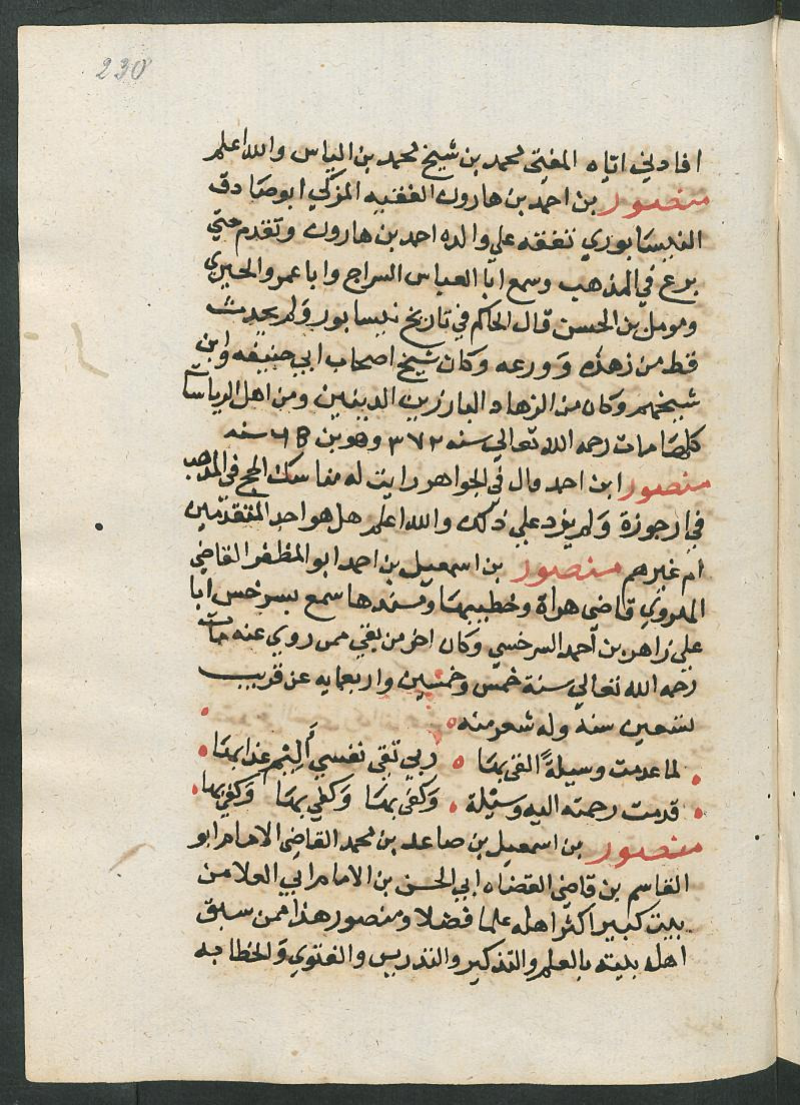 230
افادني اياه المفتي محمد بن شيخ محمد بن الياس والله اعلم
منصور بن احمد بن هارون الفقيه المزكي ابو صادق
النيسابوري تفقه علي والده احمد بن هارون وتقدم حتي
برع في المذهب وسمع ابا العباس السراج وابا عمرو الحيري
ومومل بن الحسن قال الحاكم في تاريخ نيسابور ولم يحدث
قط من زهده وورعه وكان شيخ اصحاب ابي حنيفه وابن
شيخهم وكان من الزهاد البارزين الدينين ومن اهل الرياسات
كلها مات رحمه الله تعالي سنه ٣٧٢ وهو بن سنه
منصور ابن احمد قال في الجواهر رايت له مناسك الحج في المذهب
في ارجوزة ولم يزد علي ذلك والله اعلم هل هو احد المتقدمين
ام غيرهم منصور بن اسمعيل بن احمد ابو المظفر القاضي
الهروي قاضي هراة وخطيبها ومسندها سمع بسرخس ابا
علي زاهر بن احمد السرخسي وكان اخر من بقي ممن روي عنه مات
رحمه الله تعالي سنة خمس وخمسين واربعمايه عن قريب
تسعين سنة وله شعر منه
لما عدمت وسيلةً القى بها ربي تقي نفسي اليم عذابها
قدمت رحمته اليه وسيلة وكفى بها وكفي بها وكفي بها
منصور بن اسمعيل بن صاعد بن محمد القاضي الامام ابو
القاسم بن قاضي القضاه ابي الحسن بن الامام ابي العلا من
بيت كبير اكثر اهله علما فضلا ومنصور هذا ممن سبق
اهل بيته بالعلم والتذكير والتدريس والفتوي والخطابه